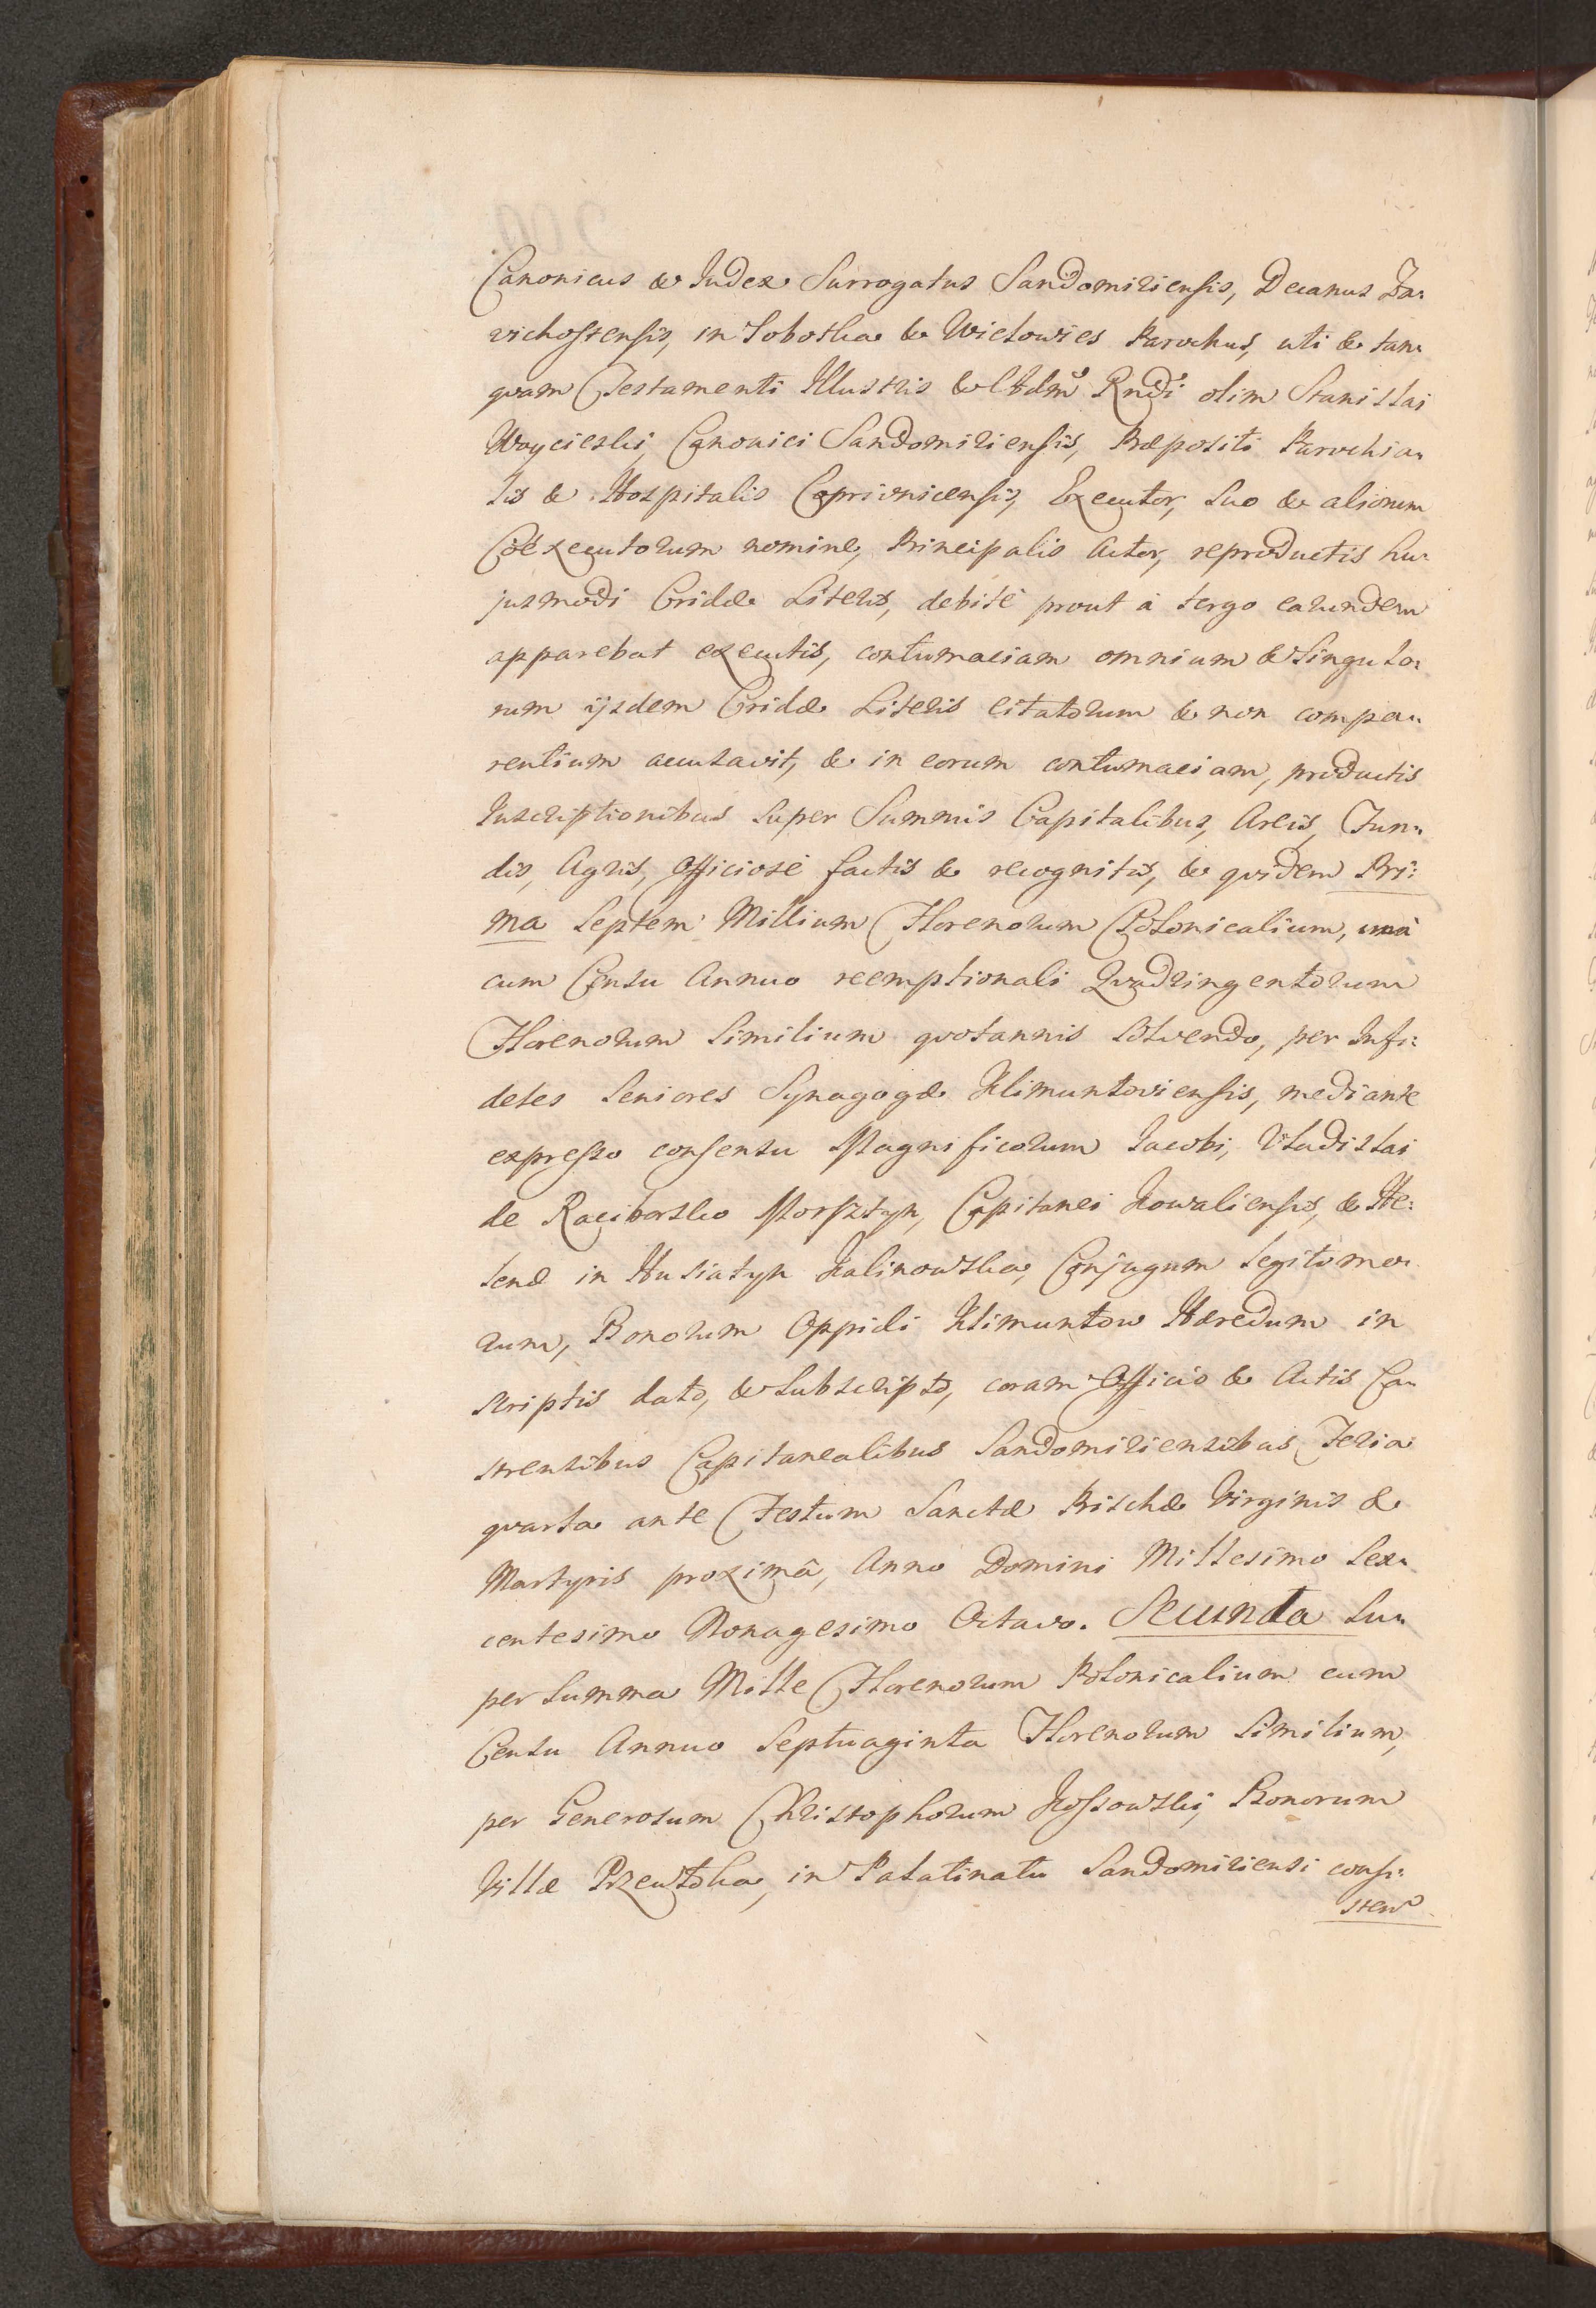 Canonicus & Iudex Surrogatus Sandomiriensis, Decanus Za:
vichostensis, in Sobotka & Wielowies Parochus, uti & tan:
qvam Testamenti Illustris & Adm Rndi olim Stanislai
Woycieski, Canonici Sandomiriensis, Præpositi Parochia:
lis & Hospitalis Coprivnicensis, Executor, suo & aliorum
Coëxecutorum nomine, Principalis Actor, reproductis hu:
jusmodi Cridæ Literis, debitè prout à tergo earundem
apparebat executis, contumaciam omnium & singulo:
rum ijsdem Cridæ Literis citatorum & non compa:
rentium accusavit, & in eorum contumaciam, productis
Inscriptionibus super Summis Capitalibus, Areis, Fun:
dis, Agris, officiosè factis & recognitis, & qvidem Pri:
ma Septem Millium Florenorum Polonicalium, unà
cum Censu Annuo reemptionali Qvadringentorum
Florenorum similium qvotannis solvendo, per Infi:
deles Seniores Synagogæ Klimuntoviensis, mediante
expresso consensu Magnificorum Iacobi, Vladislai
de Raciborsko Morsztyn, Capitanei Kowaliensis, & He:
lenæ in Husiatyn Kalinowska, Conjugum legitimo:
rum, Bonorum Oppidi Klimuntow Hæredum in
scriptis dato, & subscripto, coram Officio & Actis Ca:
strensibus Capitanealibus Sandomiriensibus Feria
qvarta ante Festum Sanctæ Priscæ Virginis &
Martyris proximâ, Anno Domini Millesimo Sex:
centesimo Nonagesimo Octavo. Secunda su:
per summa Mille Florenorum Polonicalium cum
Censu Annuo Septuaginta Florenorum similium,
per Generosum Christophorum Kossowski, Bonorum
Villæ Przewłoka, in Palatinatu Sandomiriensi consi:
sten